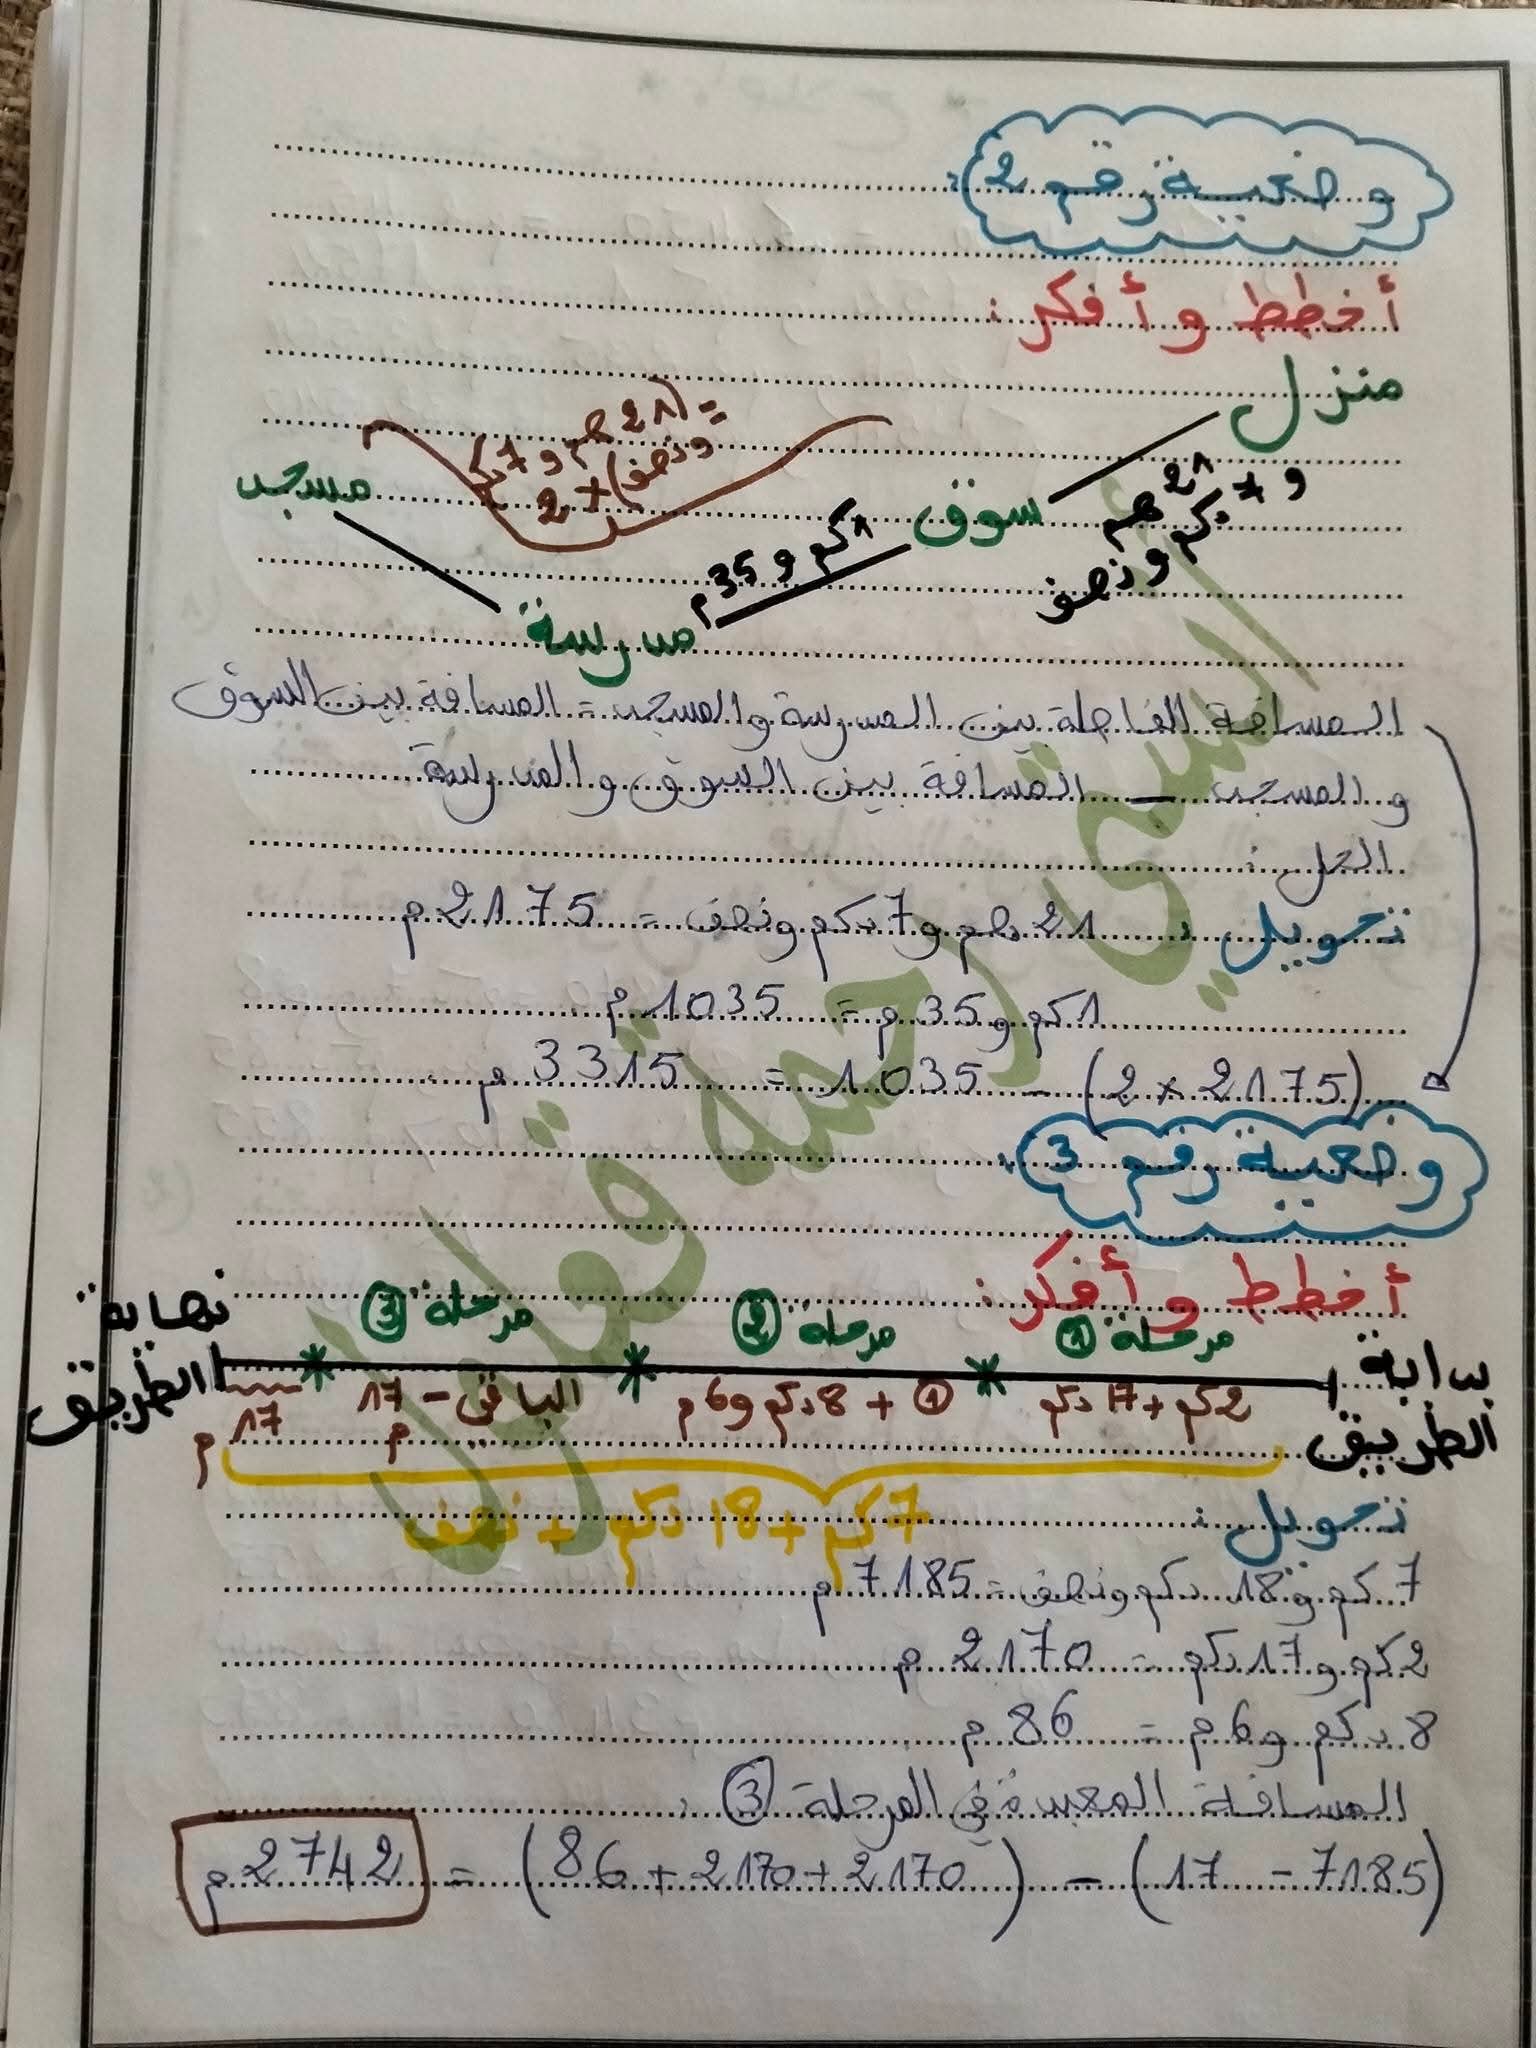 وضعية رقم 2:
أخطط وأفكر:
منزل
21 هم
و 7 دكم ونصف
سوق
1 كم و 35 م
مدرسة
مسجد
= (21 هم و 7 دكم
ونصف) × 2
المسافة الفاصلة بين المدرسة والمسجد = المسافة بين السوق
والمسجد - المسافة بين السوق والمدرسة
الحل:
تحويل: 21 هم و 7 دكم ونصف = 2175 م
1 كم و 35 م = 1035 م
(2175 × 2) - 1035 = 3315 م
وضعية رقم 3:
أخطط وأفكر:
مرحلة ① مرحلة ② مرحلة ③
بداية الطريق
نهاية الطريق
2 كم + 17 دكم
① + 8 دكم و 6 م
الباقي - 17 م
17 م
7 كم + 18 دكم + نصف
تحويل:
7 كم و 18 دكم ونصف = 7185 م
2 كم و 17 دكم = 2170 م
8 دكم و 6 م = 86 م
المسافة المعبدة في المرحلة ③:
(7185 - 17) - (2170 + 2170 + 86) = 2742 م